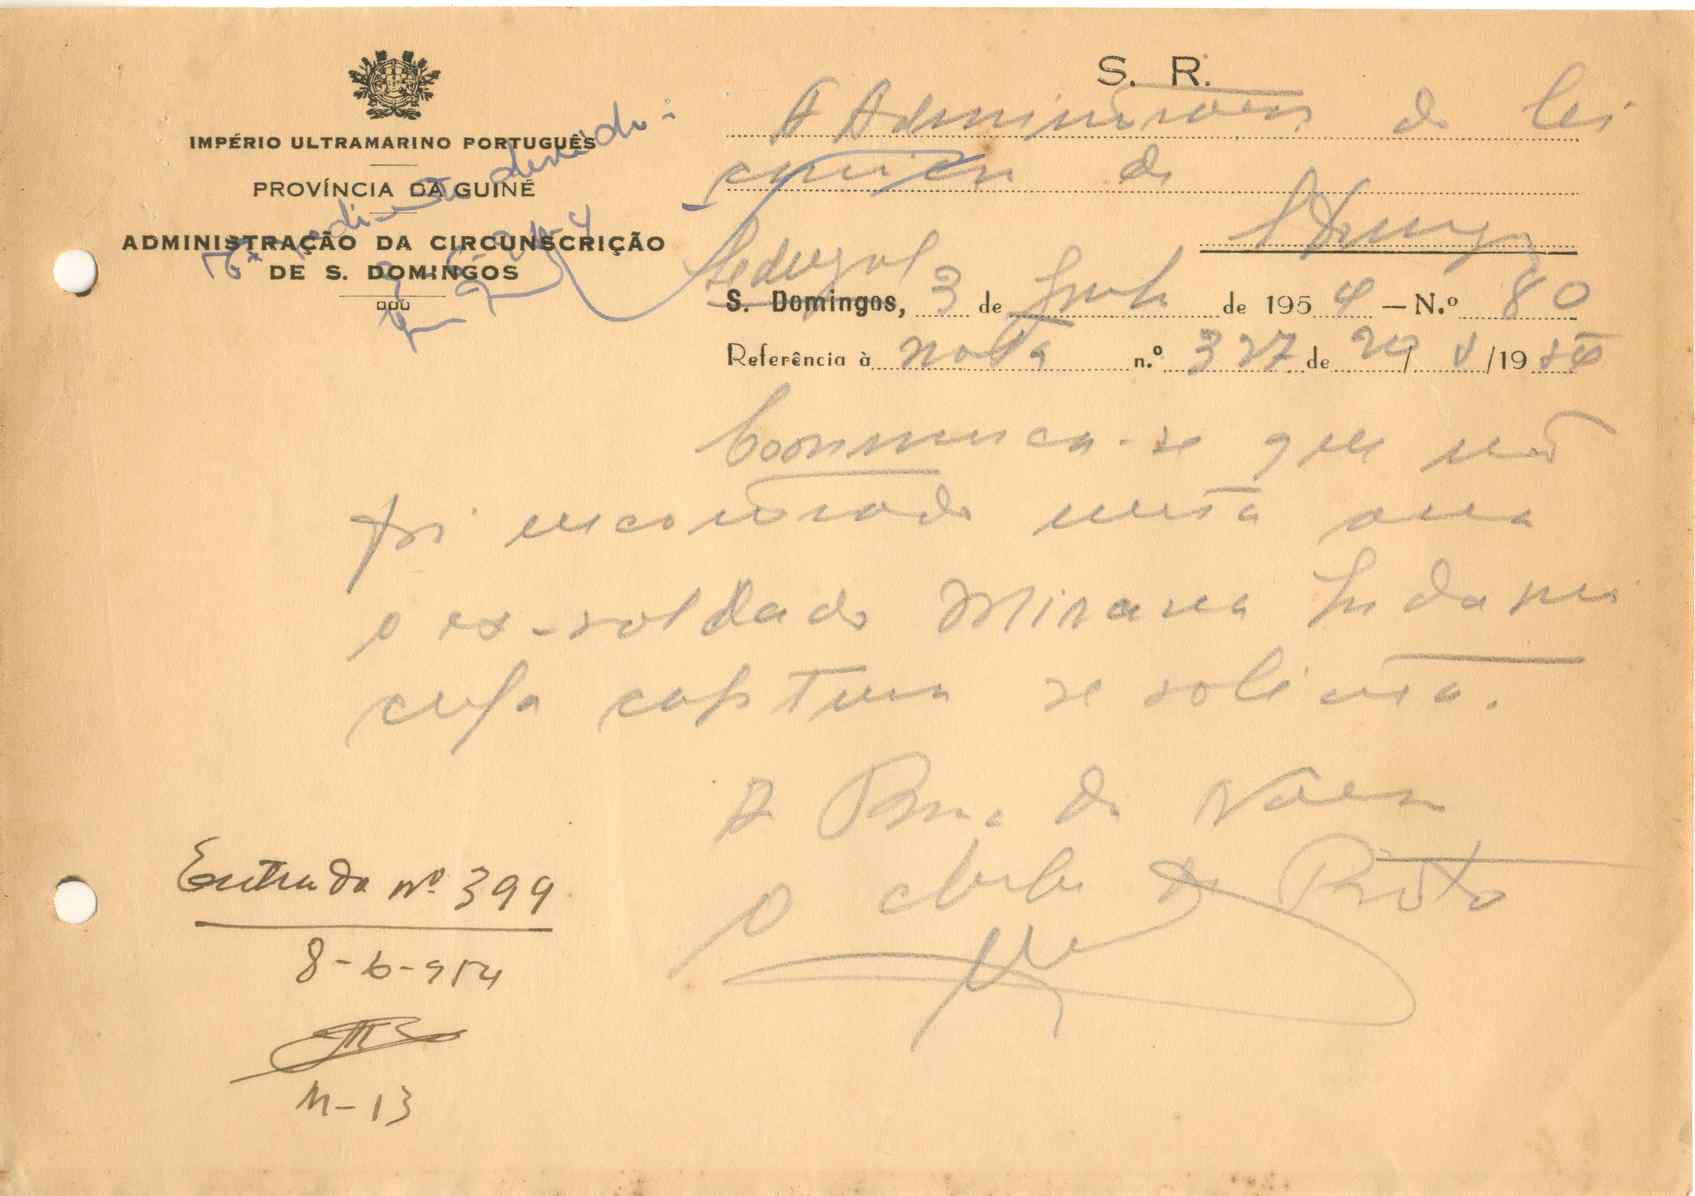 S. R.
IMPÉRIO ULTRAMARINO PORTUGUÊS
PROVÍNCIA DA GUINÉ
ADMINISTRAÇÃO DA CIRCUNSCRIÇÃO
DE S. DOMINGOS
A Administração da Cir
cunscr. de
S. Domingos
S. Domingos, 3 de Junho de 1954 — N.º 80
Referência à nota n.º 327 de 20/V/1954
Comunica-se que não
foi encontrado nesta area
o ex-soldado
cuja captura se solicita.
A Bem da Nação
O Chefe de Posto
Entrada nº 399
8-6-954
M-13